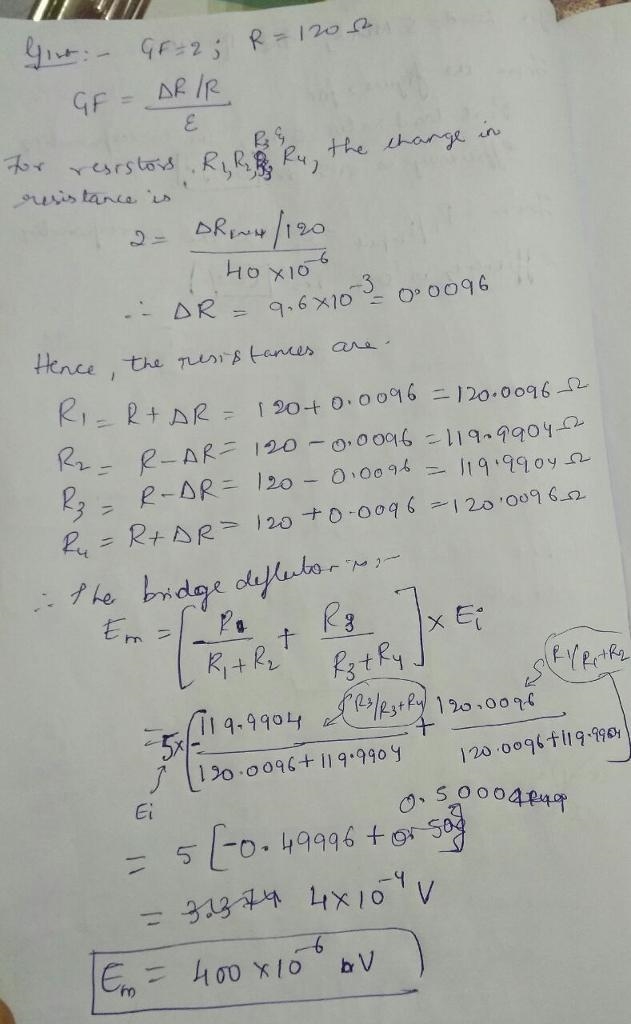 Given:- GF=2; R = 120 Ω
GF = ΔR/R / ε
For resistors R1, R2, R3 & R4, the change in
resistance is
2 = ΔR/120 / 40 × 10^-6
∴ ΔR = 9.6×10^-3 = 0.0096
Hence, the resistances are.
R1 = R + ΔR = 120 + 0.0096 = 120.0096 Ω
R2 = R - ΔR = 120 - 0.0096 = 119.9904 Ω
R3 = R - ΔR = 120 - 0.0096 = 119.9904 Ω
R4 = R + ΔR = 120 + 0.0096 = 120.0096 Ω
∴ The bridge
Em = [- / R1+R2 + R3 / R3+R4] × Ei
R1/R1+R2
R3/R3+R4
= 5× [- 119.9904 / 120.0096 + 119.9904 + 120.0096 / 120.0096 + 119.9904]
Ei
0.5000
= 5 [-0.49996 + ]
= 4×10^-4 V
Em = 400 × 10^-6 V